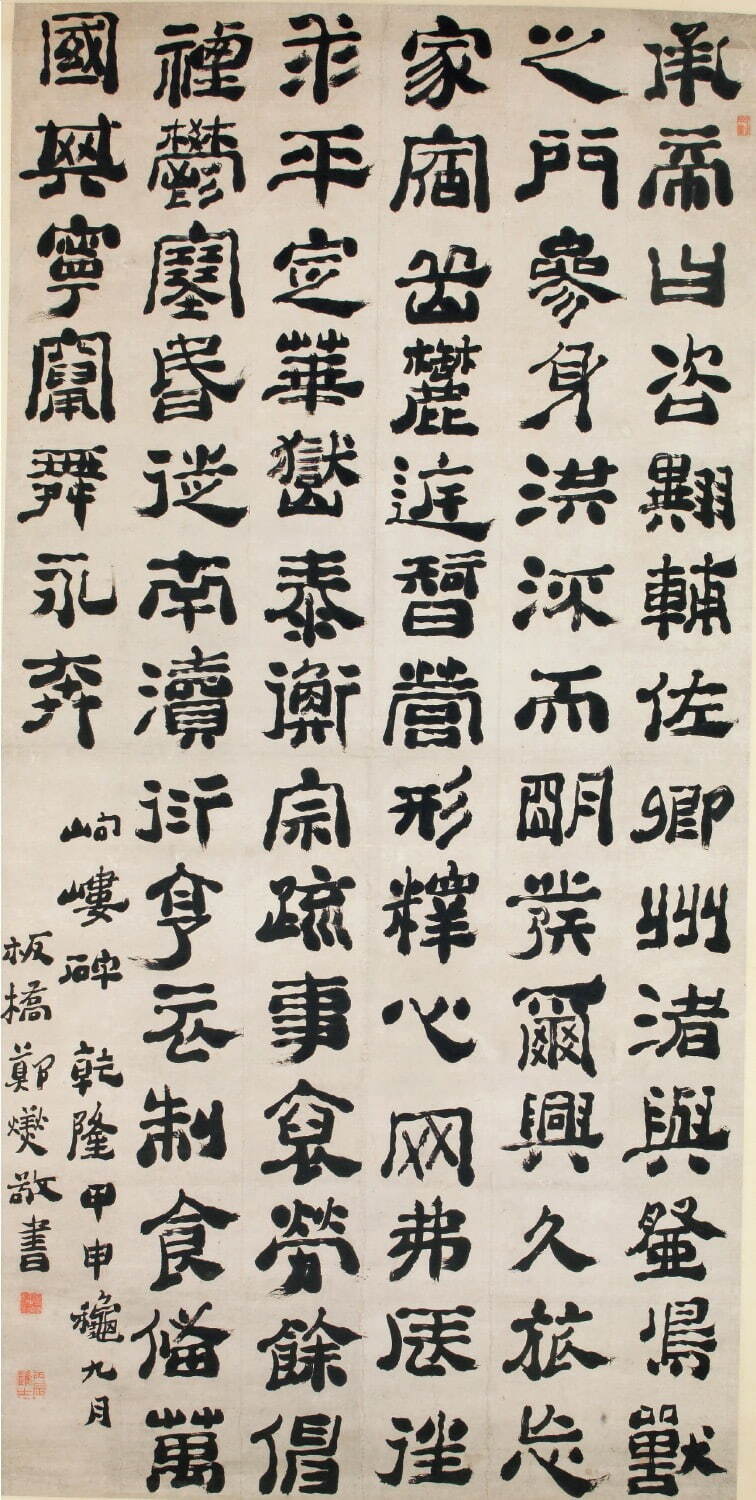 承帝曰咨翼輔佐卿州渚與登鳥獸
之門參身洪流而明發爾興久旅忘
家宿岳麓庭智營形釋心网弗辰往
求平定華嶽泰衡宗疏事裒勞餘伸
禋鬱塞昏徙南瀆衍亨衣制食備萬
國其寧竄舞永奔
岣嶁碑 乾隆甲申龝九月
板橋鄭燮敬書